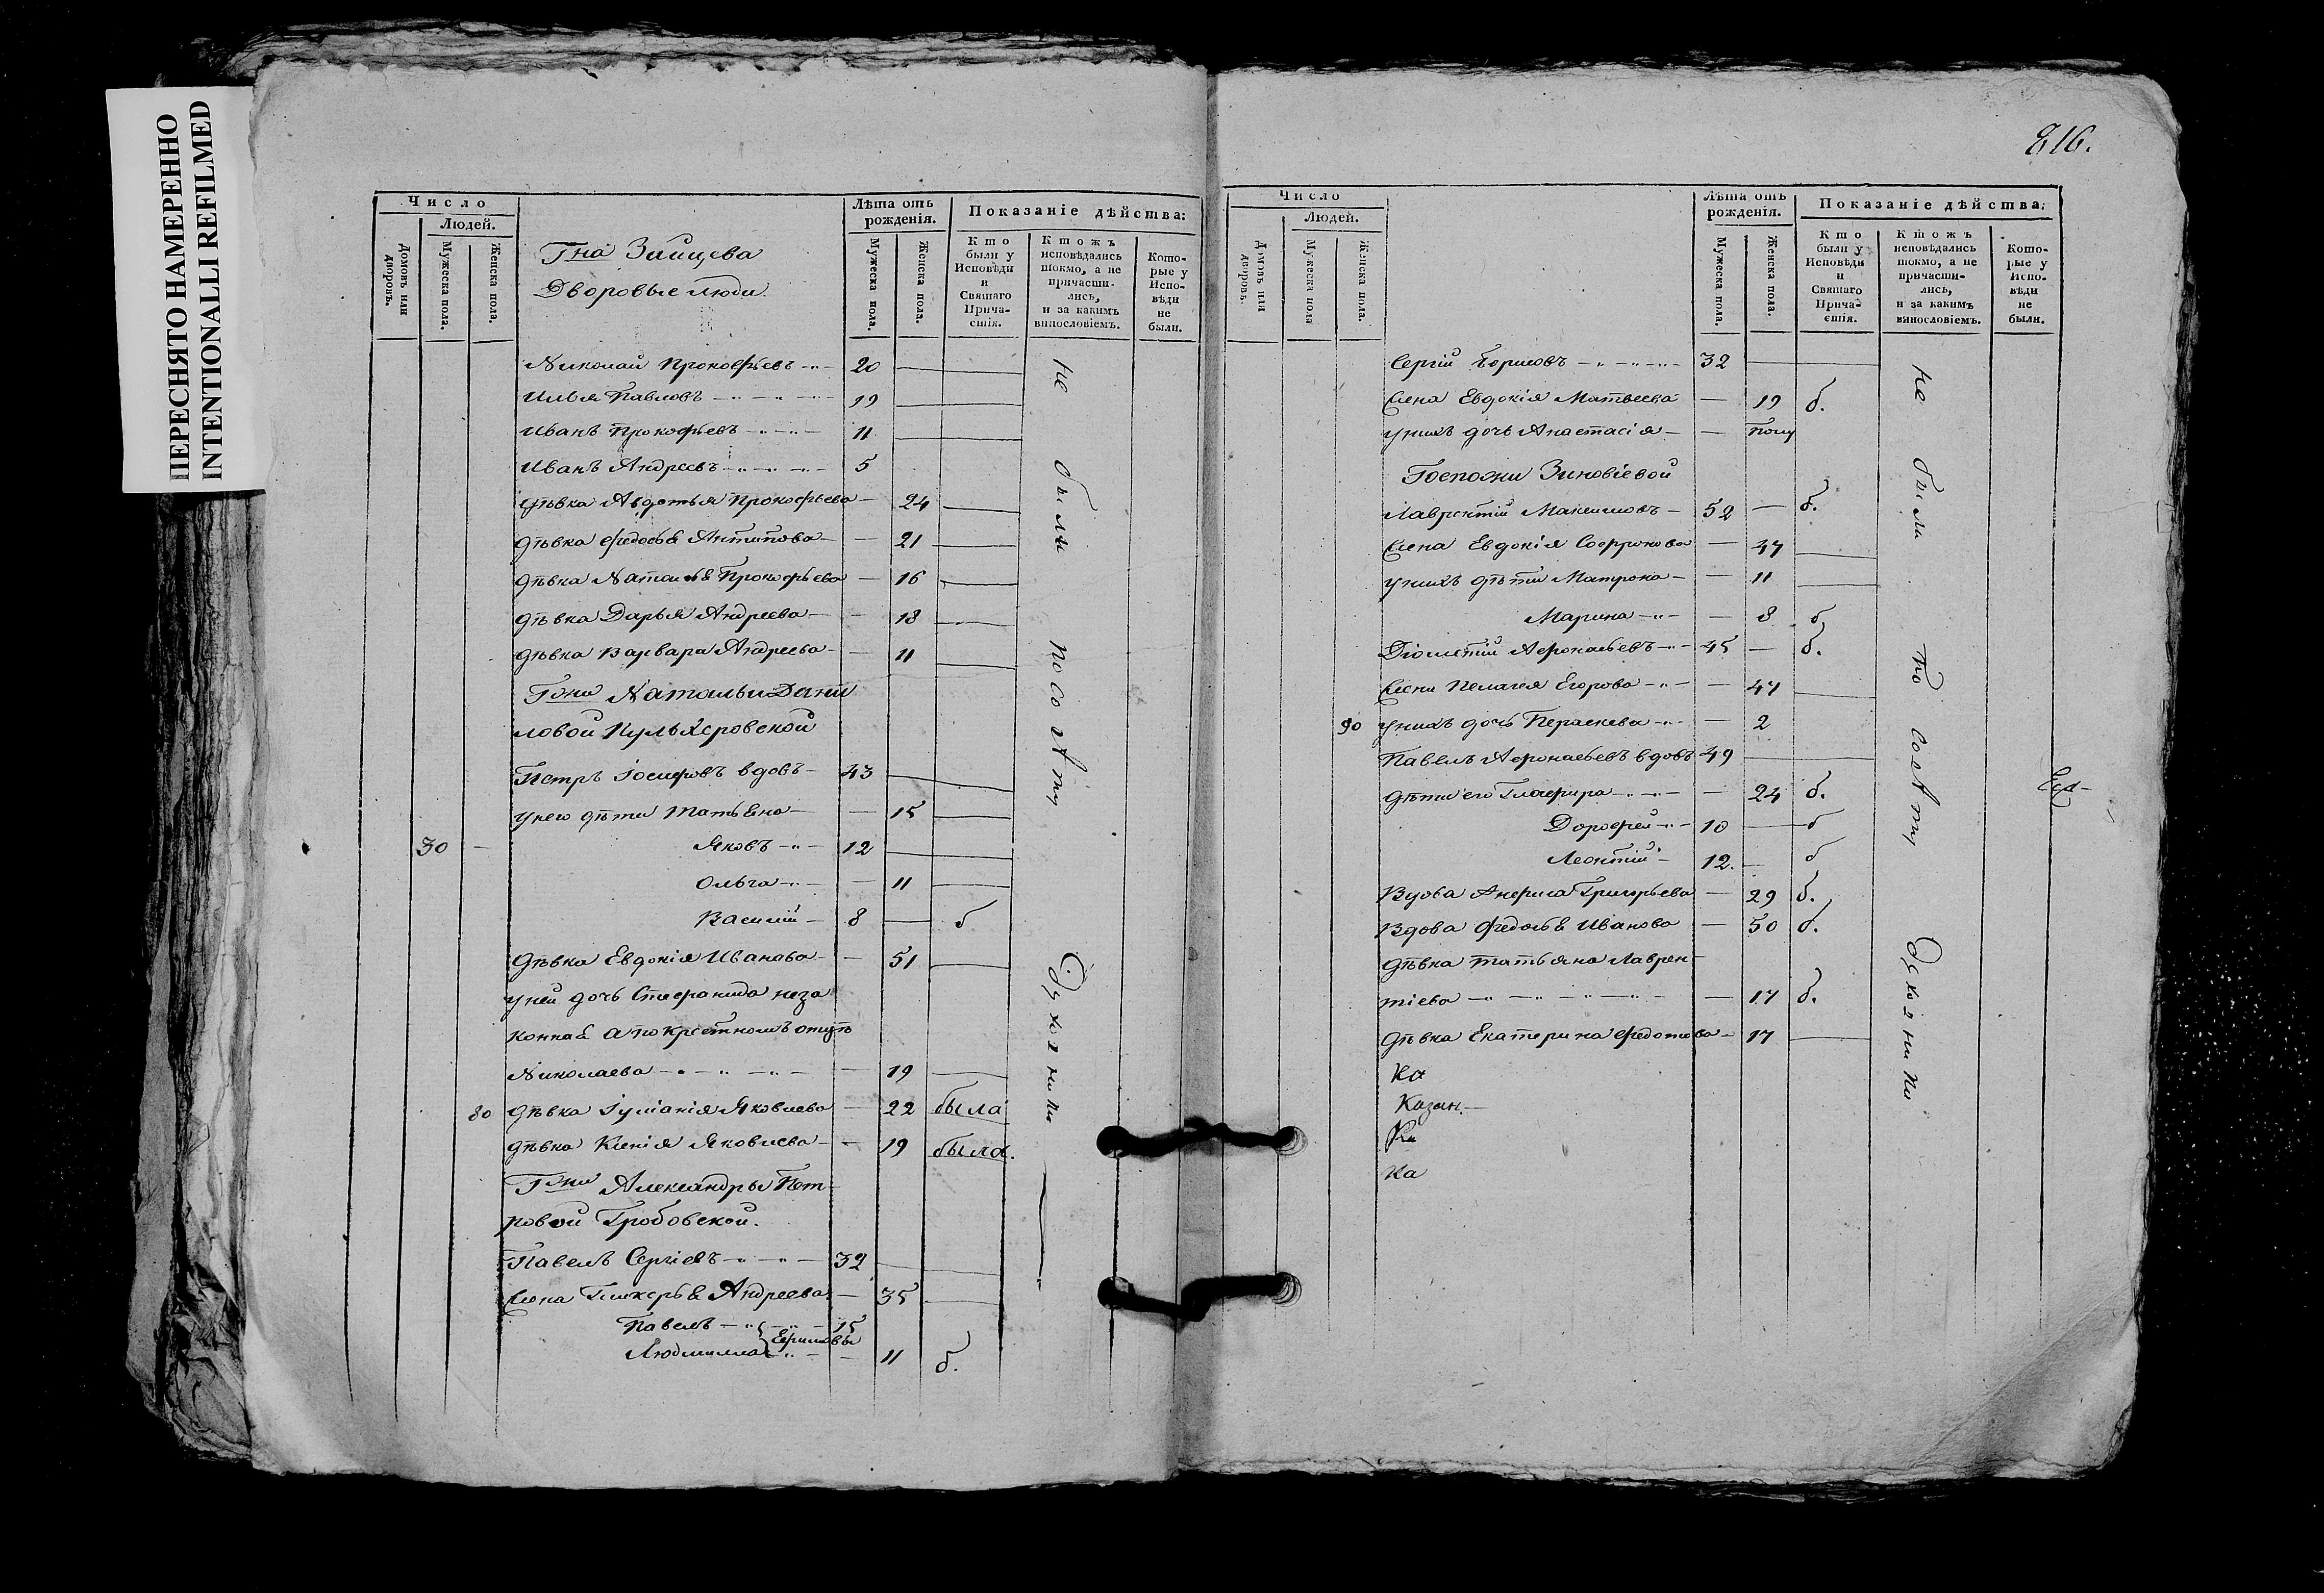 ПЕРЕСНЯТО НАМЕРЕННО
INTENTIONALLI REFILMED
816.
Число
Людей.
Домовъ или дворовъ.
Мужеска пола.
Женска пола.
Гна Зайцева
Дворовые люди.
Лѣта отъ рожденія.
Мужеска пола.
Женска пола.
Показаніе дѣйства:
Кто были у Исповѣди и Святаго Причастія.
Ктожъ исповѣдались токмо, а не причастились, и за какимъ винословіемъ.
Которые у Исповѣди не были.
Николай Прокофьевъ 20
Илья Павловъ 19
Иванъ Прокофьевъ 11
Иванъ Андреевъ 5
дѣвка Авдотья Прокофьева 24
дѣвка Федосья Антипова 21
дѣвка Наталья Прокофьева 16
дѣвка Дарья Андреева 18
дѣвка Варвара Андреева 11
Гжи Натальи Дани
ловой Пульхеровской
Петръ Іосифовъ вдовъ 43
у него дѣти Татьяна 15
30 Яковъ 12
Ольга 11
Василій 8 б
дѣвка Евдокія Иванова 51
у ней дочь Стефанида неза
конная а по крестномъ отцѣ
Николаева 19
80 дѣвка Іуліанія Яковлева 22 была
дѣвка Ксенія Яковлева 19 была.
Гжи Александры Пет-
ровой Гробовской.
Павелъ Сергіевъ 32
Жена Гликерья Андреева 35
Павелъ 15
Ефимовы
Людмилла 11 б.
не были по сему Духовники
Число
Людей.
Домовъ или дворовъ.
Мужеска пола
Женска пола.
Лѣта отъ рожденія.
Мужеска пола.
Женска пола.
Показаніе дѣйства:
Кто были у Исповѣди и Святаго Причастія.
Ктожъ исповѣдались токмо, а не причастились, и за какимъ винословіемъ.
Которые у Исповѣди не были.
Сергій Борисовъ 32
Жена Евдокія Матвеева 19 б.
у нихъ дочь Анастасія полу
Госпожи Зиновіевой
Лаврентій Максимовъ 52 б.
Жена Евдокія Софронова 47
у нихъ дѣти Матрона 11
Марина 8 б
Афонасьевъ 45 б.
Жена Пелагея Егорова 47
90 у нихъ дочь Параскева 2
Павелъ Афонасьевъ вдовъ 49
дѣти его Глафира 24 б.
Дорофей 10 б
Леонтій 12. б
Вдова Анфиса Григорьева 29 б.
Вдова Федосья Иванова 50 б.
дѣвка Татьяна Лаврен-
тіева 17 б.
дѣвка Екатерина Федотова 17
Ка
Казан.
Ка
Ка
не были по